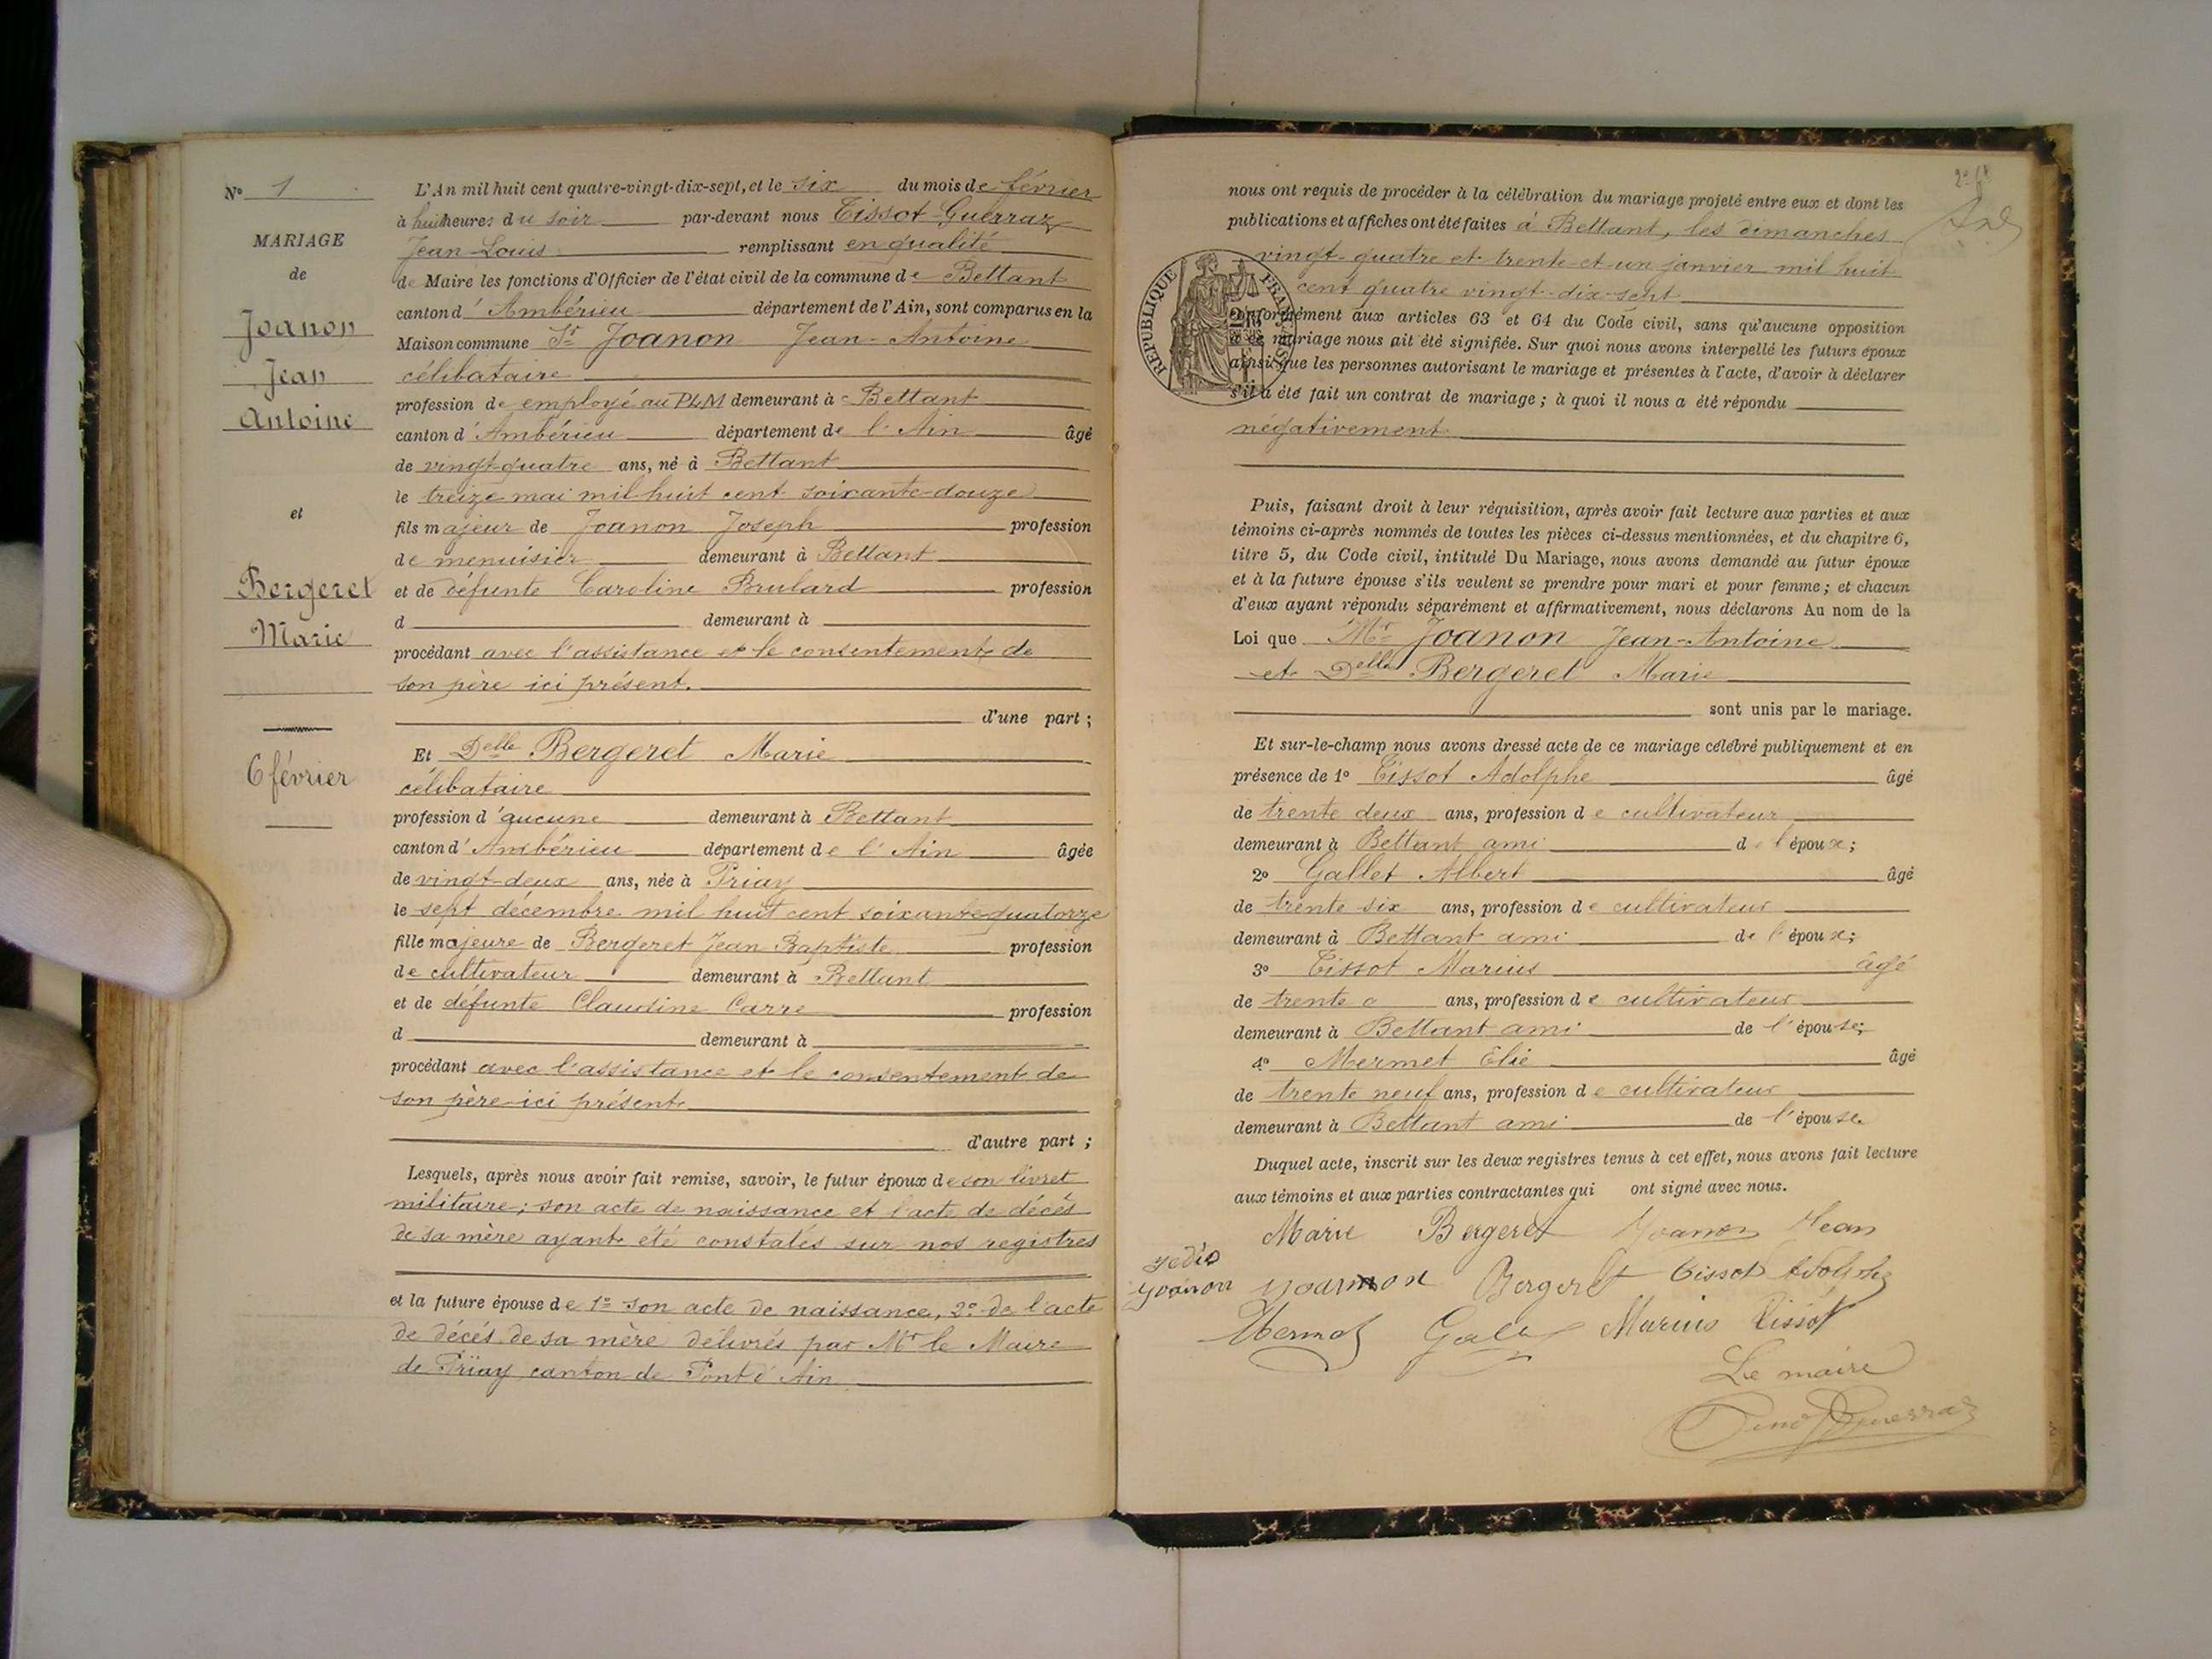 Nº 1
MARIAGE
de
Joanon
Jean
Antoine
et
Bergeret
Marie
6 février
L'An mil huit cent quatre-vingt-dix-sept, et le six du mois de février
à huit heures du soir par-devant nous Tissot-Guerraz
Jean-Louis remplissant en qualité
de Maire les fonctions d'Officier de l'état civil de la commune de Bettant
canton d'Ambérieu département de l'Ain, sont comparus en la
Maison commune Sr Joanon Jean-Antoine
célibataire
profession de employé au PLM demeurant à Bettant
canton d'Ambérieu département de l'Ain âgé
de vingt-quatre ans, né à Bettant
le treize mai mil huit cent soixante-douze
fils majeur de Joanon Joseph profession
de menuisier demeurant à Bettant
et de défunte Caroline Brulard profession
d demeurant à
procédant avec l'assistance et le consentement de
son père ici présent.
d'une part ;
Et Delle Bergeret Marie
célibataire
profession d'aucune demeurant à Bettant
canton d'Ambérieu département de l'Ain âgée
de vingt-deux ans, née à Priay
le sept décembre mil huit cent soixante quatorze
fille majeure de Bergeret Jean Baptiste profession
de cultivateur demeurant à Bettant
et de défunte Claudine Carre profession
d demeurant à
procédant avec l'assistance et le consentement de
son père ici présent
d'autre part ;
Lesquels, après nous avoir fait remise, savoir, le futur époux de son livret
militaire ; son acte de naissance et l'acte de décés
de sa mère ayant été constatés sur nos registres
et la future épouse de 1º son acte de naissance, 2º de l'acte
de décés de sa mère délivrés par Mr le Maire
de Priay canton de Pont d'Ain
nous ont requis de procéder à la célébration du mariage projeté entre eux et dont les
publications et affiches ont été faites à Bettant, les dimanches
vingt-quatre et trente-et-un janvier mil huit
cent quatre vingt-dix-sept
REPUBLIQUE FRANÇAISE
conformément aux articles 63 et 64 du Code civil, sans qu'aucune opposition
à ce mariage nous ait été signifiée. Sur quoi nous avons interpellé les futurs époux
ainsi que les personnes autorisant le mariage et présentes à l'acte, d'avoir à déclarer
s'il a été fait un contrat de mariage ; à quoi il nous a été répondu
négativement
Puis, faisant droit à leur réquisition, après avoir fait lecture aux parties et aux
témoins ci-après nommés de toutes les pièces ci-dessus mentionnées, et du chapitre 6,
titre 5, du Code civil, intitulé Du Mariage, nous avons demandé au futur époux
et à la future épouse s'ils veulent se prendre pour mari et pour femme ; et chacun
d'eux ayant répondu séparément et affirmativement, nous déclarons Au nom de la
Loi que Mr Joanon Jean-Antoine
et Delle Bergeret Marie
sont unis par le mariage.
Et sur-le-champ nous avons dressé acte de ce mariage célébré publiquement et en
présence de 1º Tissot Adolphe âgé
de trente deux ans, profession de cultivateur
demeurant à Bettant ami de l'époux ;
2º Gallet Albert âgé
de trente six ans, profession de cultivateur
demeurant à Bettant ami de l'époux ;
3º Tissot Marius âgé
de trente ans, profession de cultivateur
demeurant à Bettant ami de l'épouse ;
4º Mermet Elie âgé
de trente neuf ans, profession de cultivateur
demeurant à Bettant ami de l'épouse.
Duquel acte, inscrit sur les deux registres tenus à cet effet, nous avons fait lecture
aux témoins et aux parties contractantes qui ont signé avec nous.
Marie Bergeret Joanon Jean
Joanon Joannon Bergeret Tissot Adolphe
Mermet Marius Tissot
Le maire
Guerraz